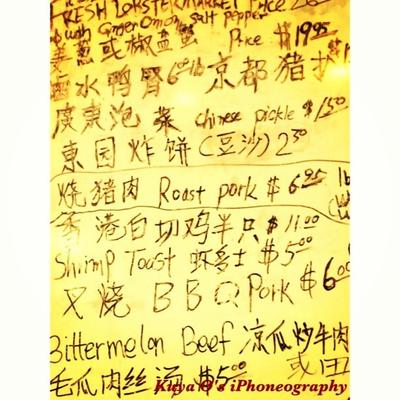 FRESH LOBSTER MARKET Price
with Ginger Onion salt pepper
姜葱或椒盐蟹 Price $19.95
卤水鸭肾 6.00 lb 京都猪扒
廣東泡菜 chinese pickle $1.50
東园炸饼(豆沙)2.50
烧猪肉 Roast pork $6.95 lb
香港白切鸡半只 $11.00
Shrimp Toast 虾多士 $5.00
叉烧 BBQ Pork $6.00
Bittermelon Beef 凉瓜炒牛肉
毛瓜肉丝汤 $5.00 或
Kuya J's iPhoneography